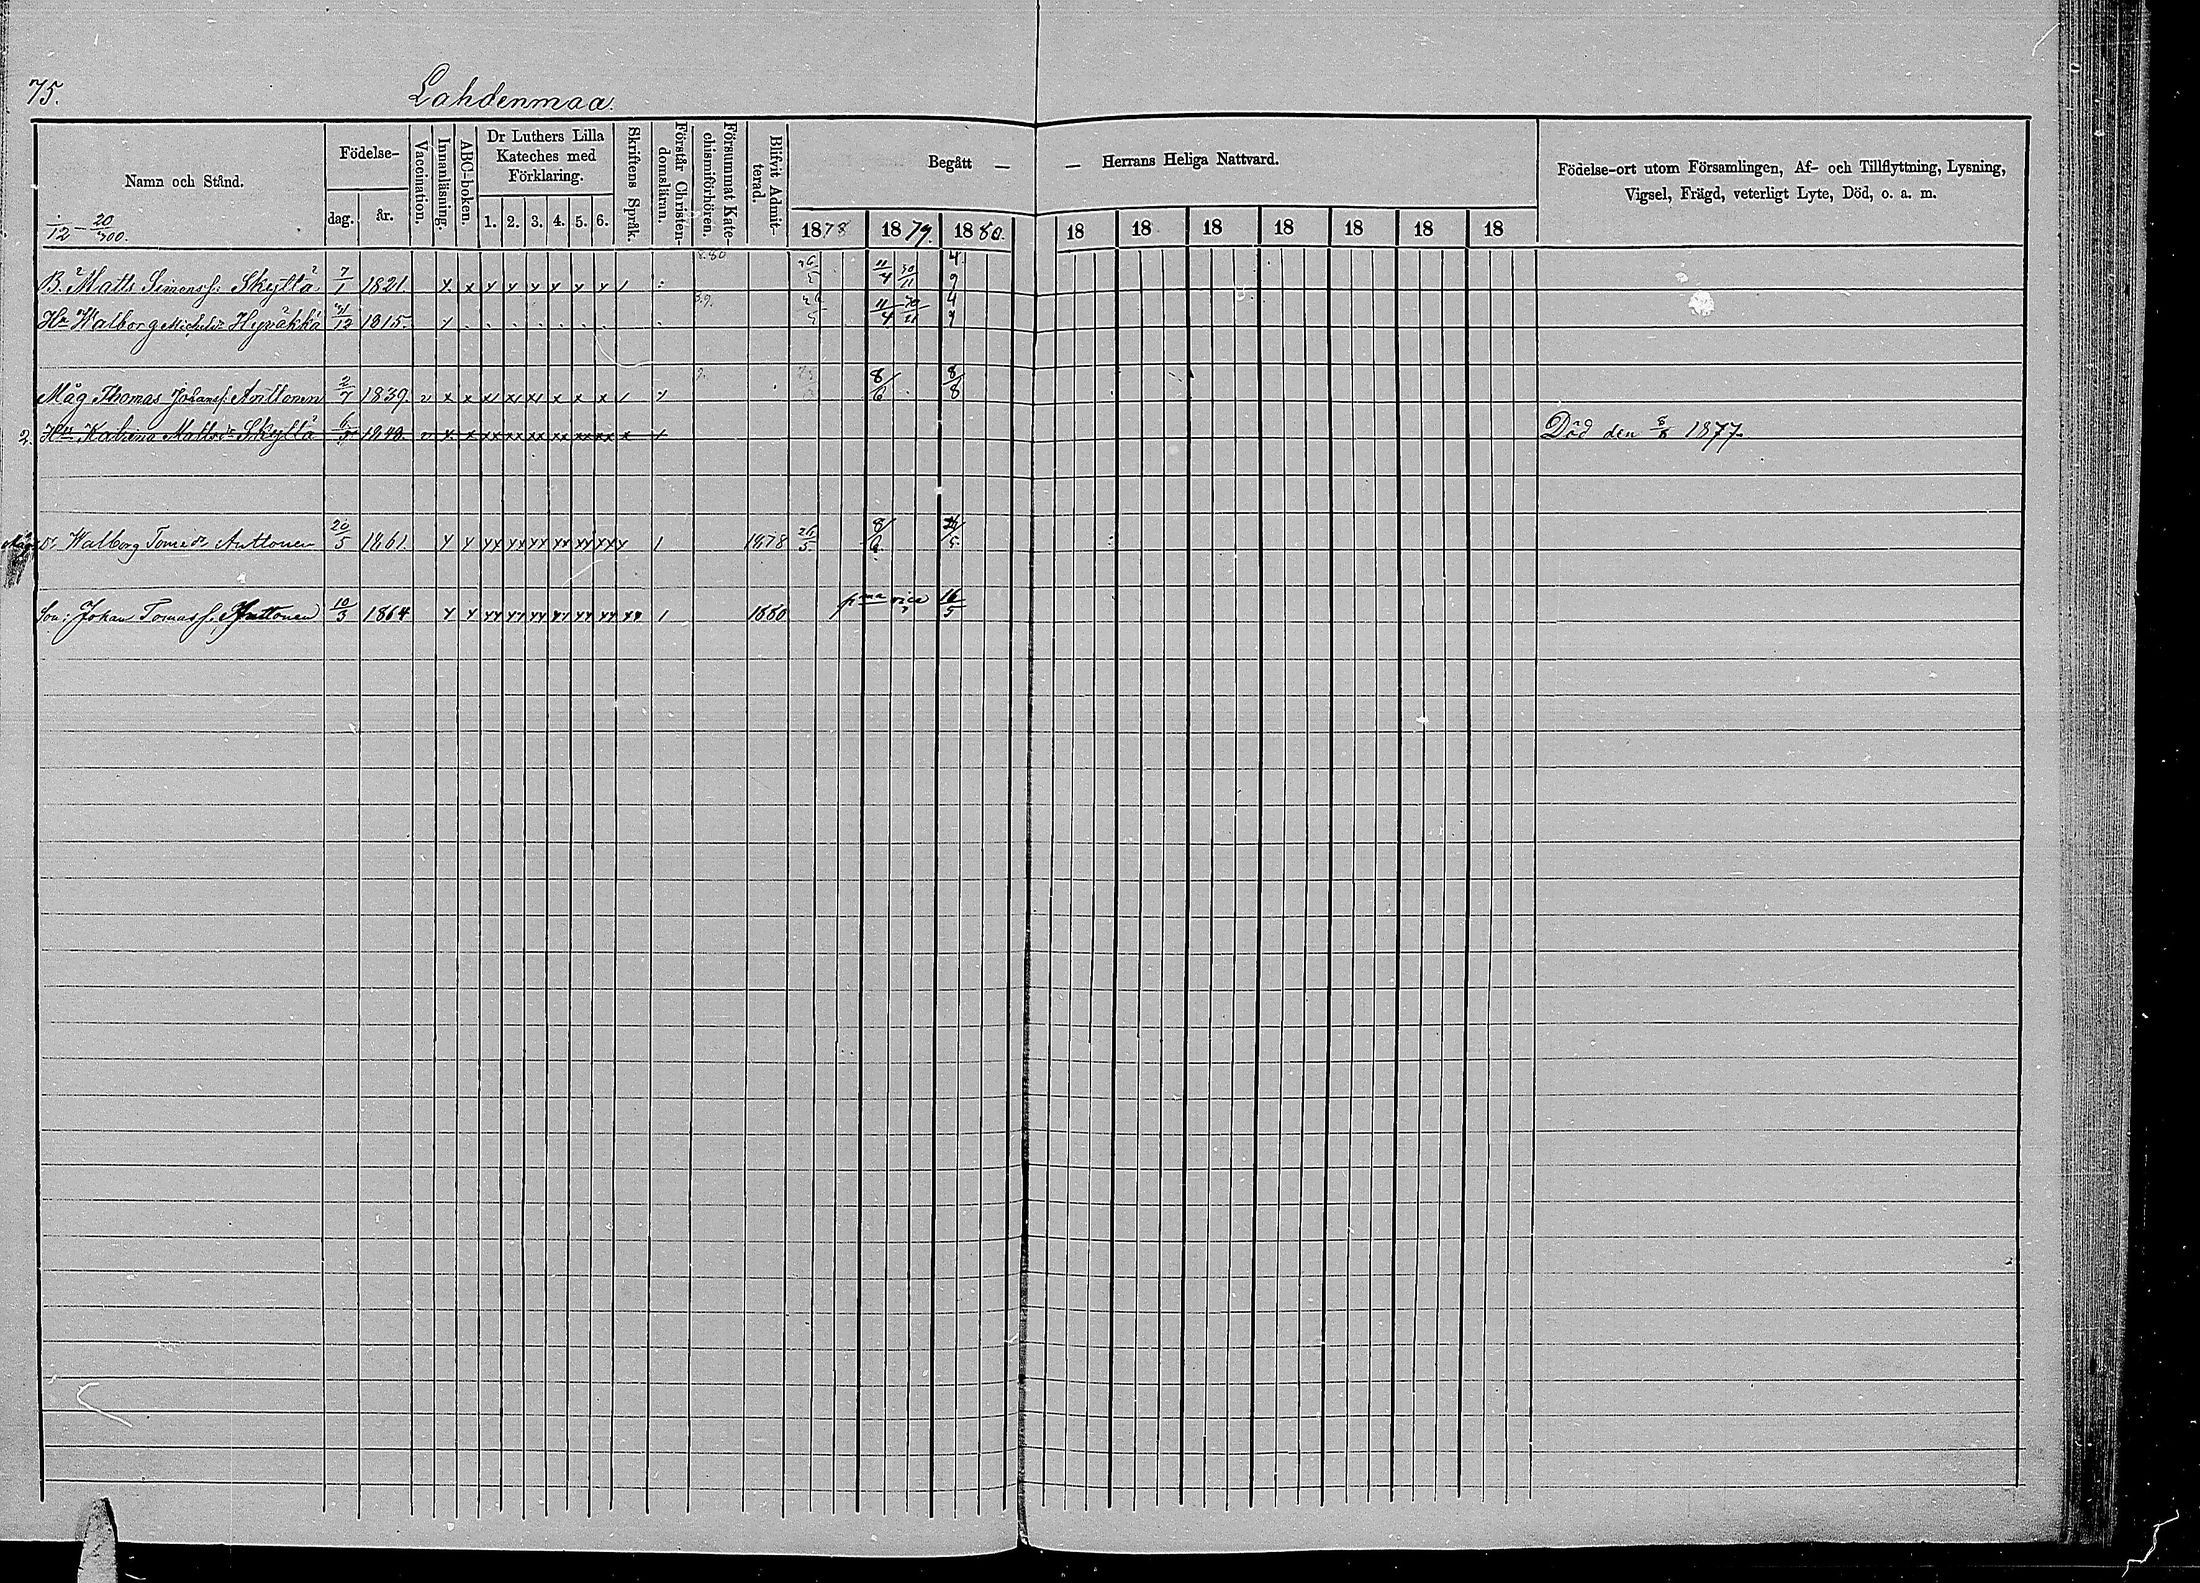 75. Lahdenmaa.
Namn och Stånd. Födelse- dag. år. Vaccination. Innanläsning. ABC-boken. Dr Luthers Lilla Kateches med Förklaring. 1. 2. 3. 4. 5. 6. Skriftens Språk. Förstår Christendomsläran. Försummat Katechismiförhören. Blifvit Admitterad. Begått — — Herrans Heliga Nattvard. 1878 1879. 1880. 18 18 18 18 18 18 18 Födelse-ort utom Församlingen, Af- och Tillflyttning, Lysning, Vigsel, Frägd, veterligt Lyte, Död, o. a. m.
B. Matts Simonss. Skyttä 7/1 1821 x x x x x x x x / : 11/4 30/11 4/9
Hu Walborg Michelsdr Hyväkkä 1815. 11/4 30/11 4/9
Måg Thomas Johanss. Anttonen 2/7 1839 v x x x/ x/ x/ x x x / 8/6 8/8
2. Hu Katrina Mattsdr Skyttä 1840. v x x xx xx xx xx xx xx x Död den 1877.
Dr Walborg Tomasdr Anttonen 20/5 1861 x x xx xx xx xx xx xx x / 1878 26/5 8/6
Son: Johan Tomass. Anttonen 10/3 1864 x x xx xx xx xx xx xx xx / 1880 pma vice 16/5